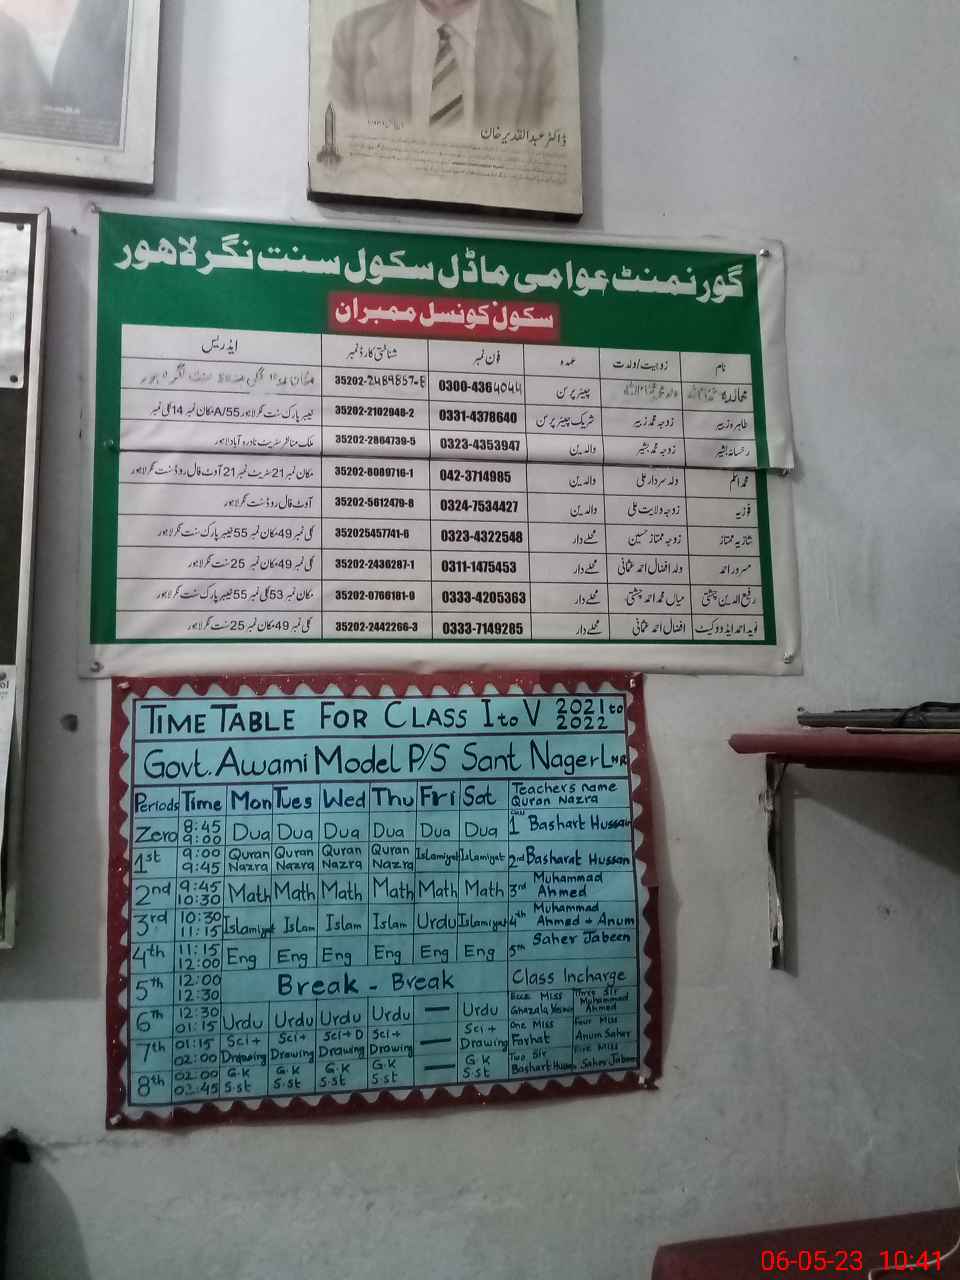 ڈاکٹر عبدالقدیر خان
گورنمنٹ عوامی ماڈل سکول سنت نگر لاهور
سکول کونسل ممبران
نام زوجیت/ولدت عہدہ فون نمبر شناختی کارڈ نمبر ایڈریس
چیئرپرسن 0300-4364044 35202-2489857-8
طاہرہ زبیر زوجہ محمد زبیر شریک چیئرپرسن 0331-4378640 35202-2102948-2
رخسانہ بشیر زوجہ محمد بشیر والدین 0323-4353947 35202-2864739-5
محمد اسلم ولد سردار علی والدین 042-3714985 35202-8089716-1 مکان نمبر 21 سٹریٹ نمبر 21 آؤٹ فال روڈ سنت نگر لاہور
فوزیہ زوجہ ولایت علی والدین 0324-7534427 35202-5612479-8 آؤٹ فال روڈ سنت نگر لاہور
شازیہ ممتاز زوجہ ممتاز حسین محلے دار 0323-4322548 352025457741-6 گلی نمبر 49 مکان نمبر 55 خیبر پارک سنت نگر لاہور
مسرور احمد ولد افضال احمد عثمانی محلے دار 0311-1475453 35202-2436287-1 گلی نمبر 49 مکان نمبر 25 سنت نگر لاہور
رفیع الدین چشتی میاں محمد احمد چشتی محلے دار 0333-4205363 35202-0766181-9 مکان نمبر 53 گلی نمبر 55 خیبر پارک سنت نگر لاہور
نوید احمد ایڈووکیٹ افضال احمد عثمانی محلے دار 0333-7149285 35202-2442266-3 گلی نمبر 49 مکان نمبر 25 سنت نگر لاہور
TIME TABLE FOR CLASS I to V 2021 to 2022
Govt. Awami Model P/S Sant Nager LHR
Periods Time Mon Tues Wed Thu Fri Sat Teachers name Quran Nazra
Zero 8:45 9:00 Dua Dua Dua Dua Dua Dua 1 Class Bashart Hussan
1st 9:00 9:45 Quran Nazra Quran Nazra Quran Nazra Quran Nazra Islamiyat Islamiyat 2nd Basharat Hussan
2nd 9:45 10:30 Math Math Math Math Math Math 3rd Muhammad Ahmed
3rd 10:30 11:15 Islamiyat Islam Islam Islam Urdu Islamiyat 4th Muhammad Ahmed + Anum
4th 11:15 12:00 Eng Eng Eng Eng Eng Eng 5th Saher Jabeen
5th 12:00 12:30 Break - Break Class Incharge
6th 12:30 01:15 Urdu Urdu Urdu Urdu — Urdu Ecce Miss Ghazala Yasmin Three Sir Muhammad Ahmed
7th 01:15 02:00 Sci + Drawing Sci + Drawing Sci + D Drawing Sci + Drawing — Sci + Drawing One Miss Farhat Four Miss Anum Saher
8th 02:00 02:45 G.K S.st G.K S.st G.K S.st G.K S.st — G.K S.st Two Sir Bashart Husan Five Miss Saher Jabeen
06-05-23 10:41